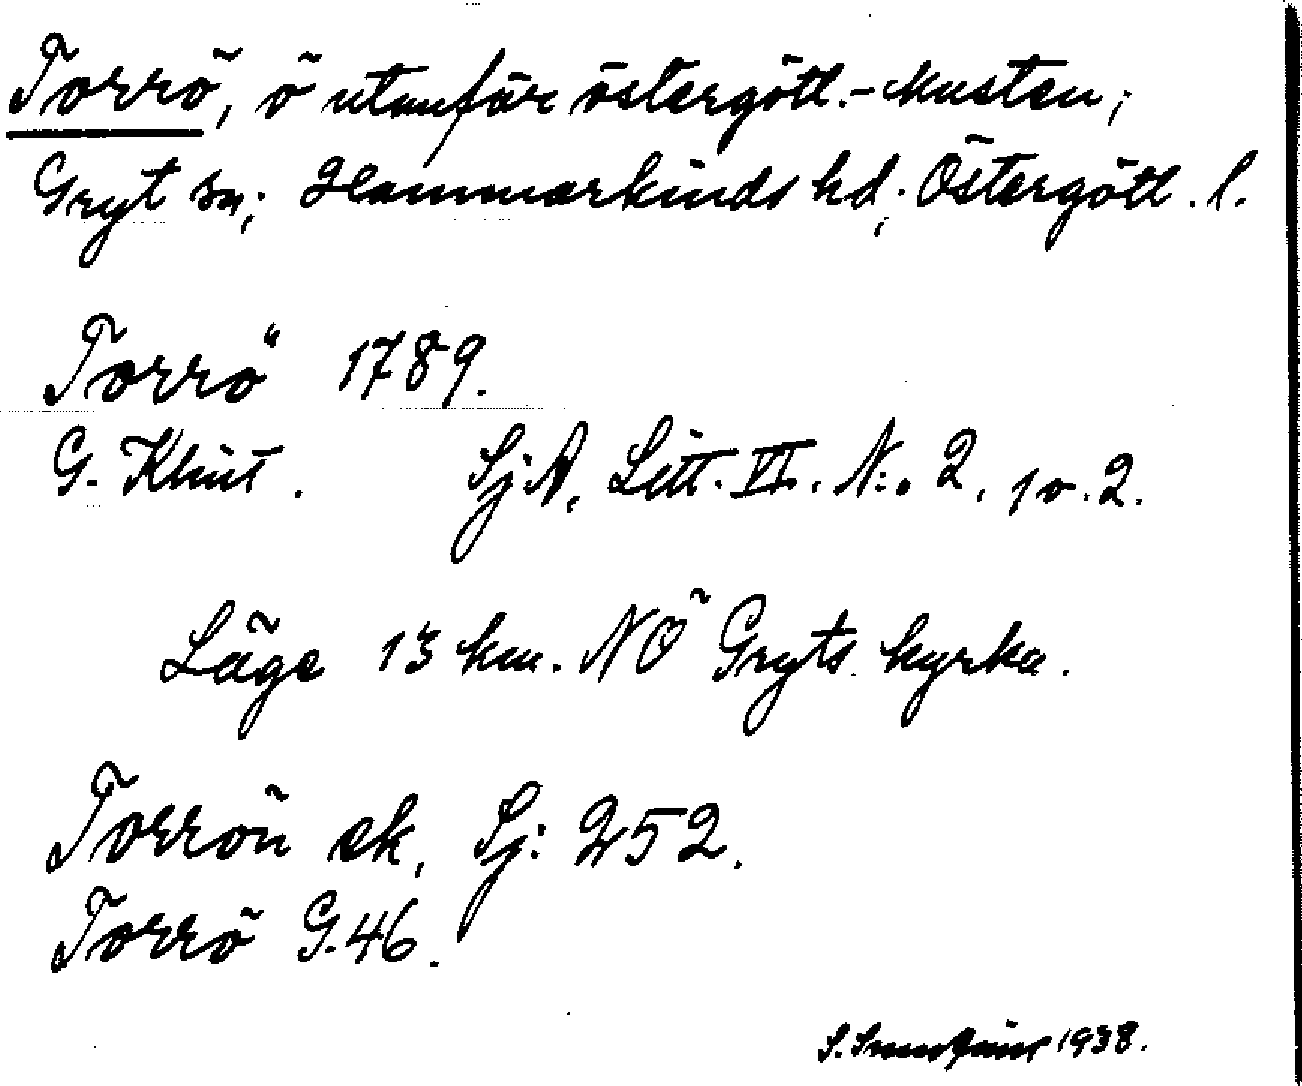 Torrö, ö utanför östergötl.-kusten;
Gryt sn; Hammarkinds hd; Östergötl. l.
Torrö 1789.
G. Klint. Sj.A. Litt. VI. N:o 2, 1 o. 2.
Läge 13 km. NÖ Gryts kyrka.
Torrön ek. Sj: 252.
Torrö G.46.
S. 1938.